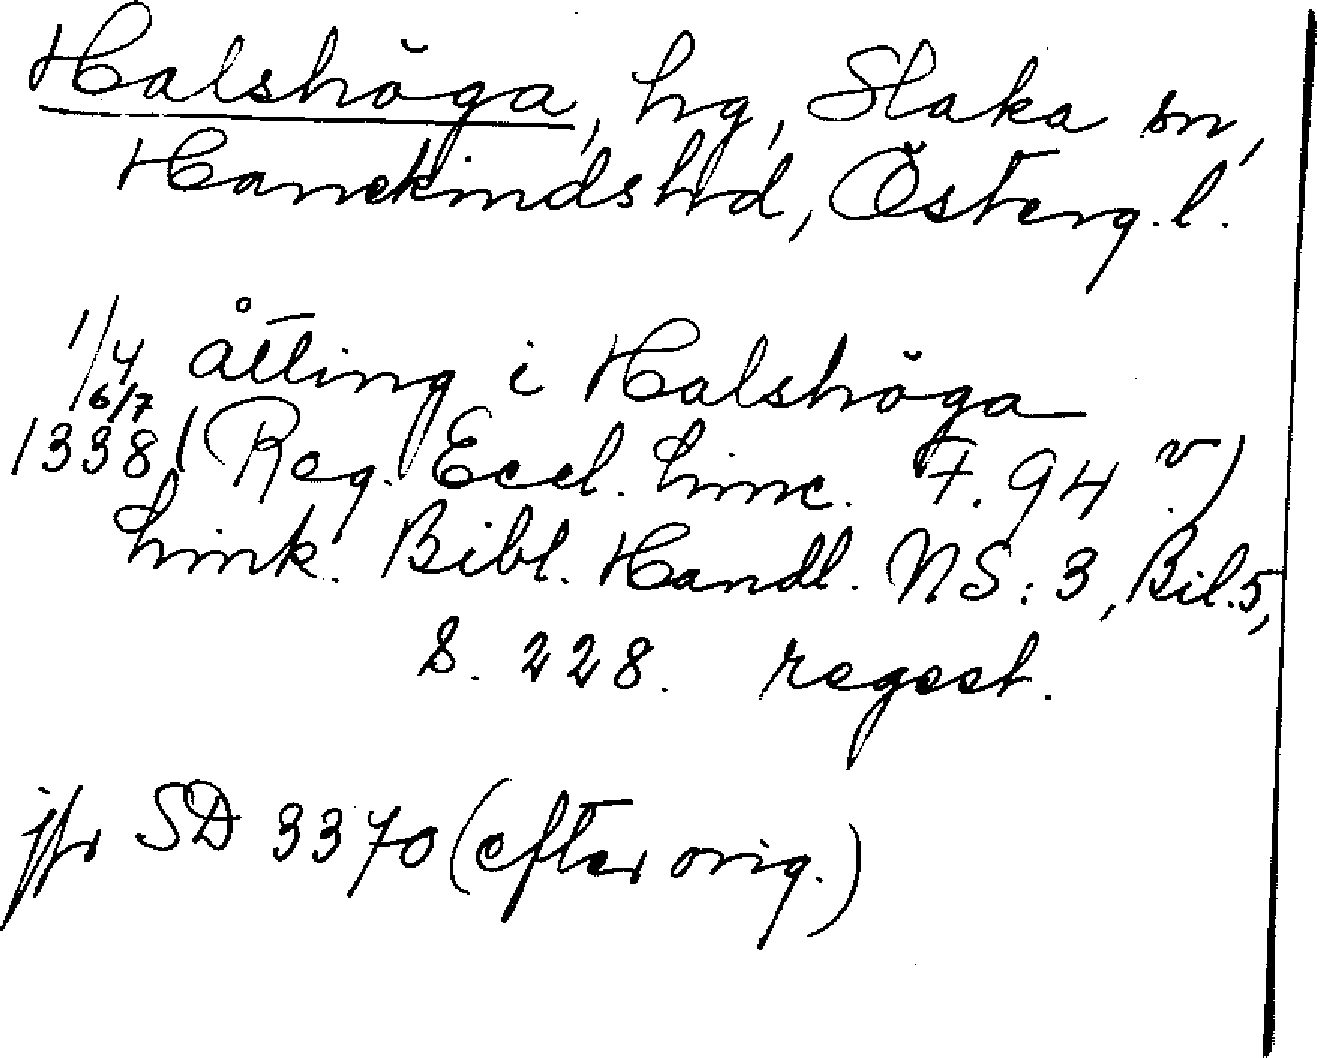 Halshöga, hg, Slaka sn,
Hanekinds hd, Österg. l.
1/4 åtting i Halshöga
6/7
1338 (Reg. Eccl. Linc. F. 94 v)
Link. Bibl. Handl. NS: 3, Bil. 5,
S. 228. regest.
jfr SD 3370 (efter orig.)